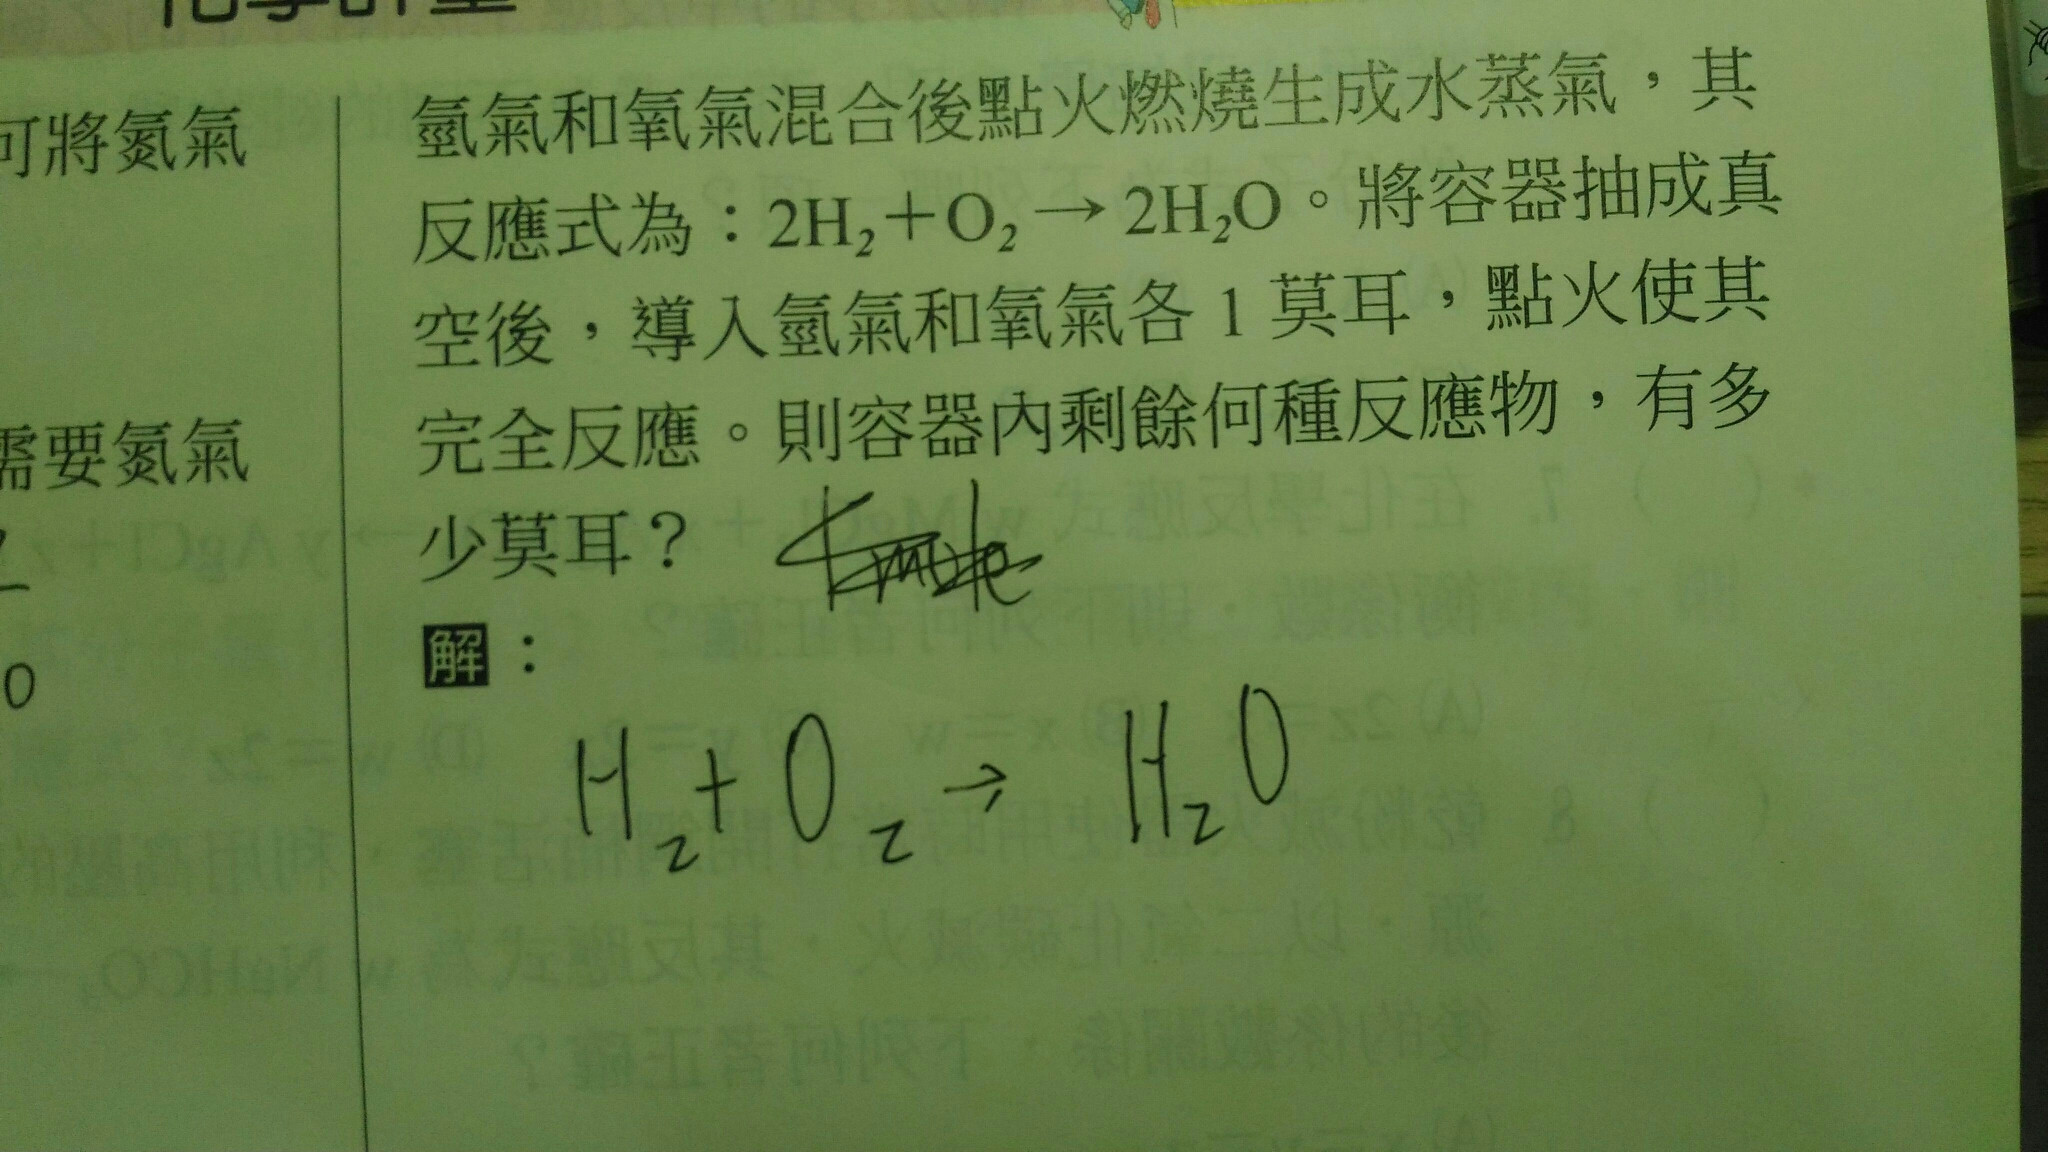 化學計量
可將氮氣
需要氮氣
0
氫氣和氧氣混合後點火燃燒生成水蒸氣，其
反應式為：2H₂＋O₂→2H₂O。將容器抽成真
空後，導入氫氣和氧氣各 1 莫耳，點火使其
完全反應。則容器內剩餘何種反應物，有多
少莫耳？
解：
H₂+O₂→ H₂O